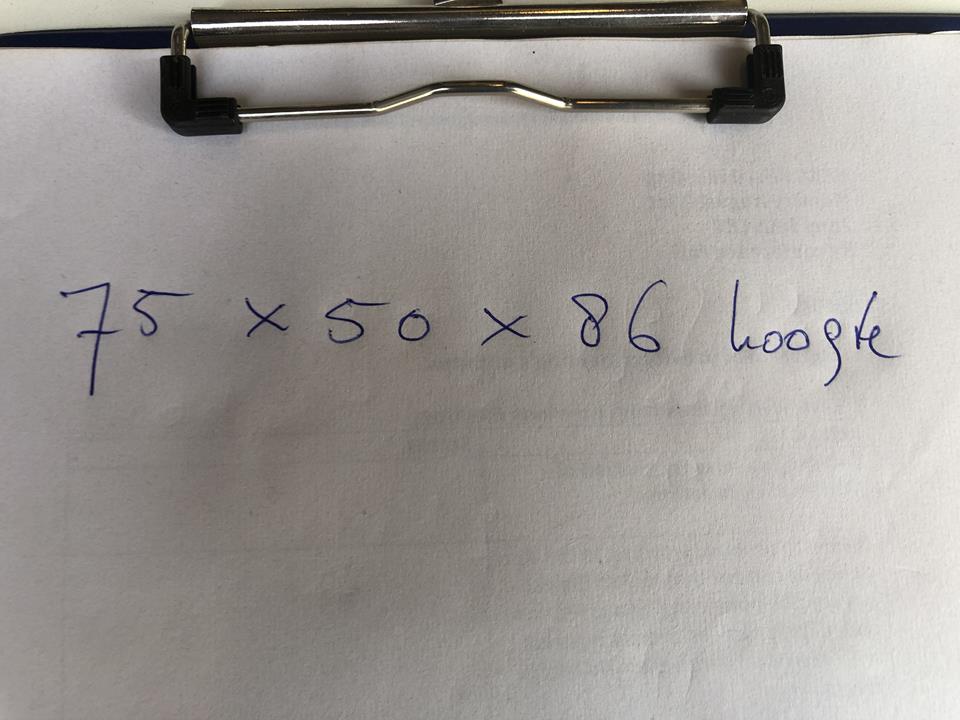 75 x 50 x 86 hoogte